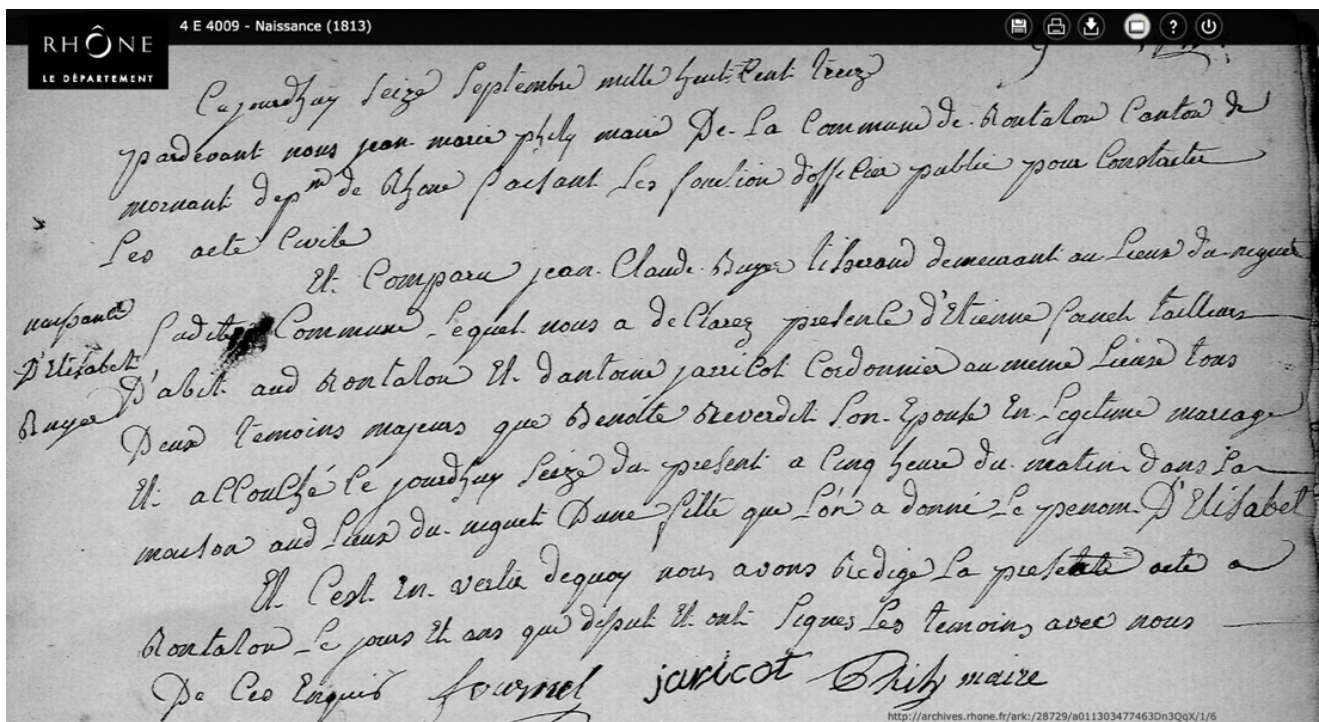 RHÔNE
LE DÉPARTEMENT
4 E 4009 - Naissance (1813)
Cejourdhuy seize Septembre mille huit Cent treize
pardevant nous jean marie phily maire De La Commune de Rontalon Canton de
mornant depm de Rhone faisant Les fonction dofficier public pour Constater
Les acte Civile
Et Comparu jean Claude Ruyer tiserand demeurant au Lieux du niguet
naissance
D'Elisabet
Ruyer
Sudite Commune Lequel nous a declarez presence d'Etienne fournel tailleurs
D'abit aud Rontalon Et dantoine jarricot Cordonnier au meme Lieux tous
Deux temoins majeurs que Benoite Reverdit Son Epouse En Legitime mariage
Et accouché Ce jourdhuy Seize du present a Cinq heure du matin dans La
maison aud Lieux du niguet Dune fille que L'on a donné Le penom D'Elisabet
Et C'est En vertu dequoy nous avons Redigé La presente acte a
Rontalon Le jours Et ans que desut Et ont Signes Les temoins avec nous
De Ces Enquis fournel jaricot Phily maire
http://archives.rhone.fr/ark:/28729/a011303477463Dn3QqX/1/6